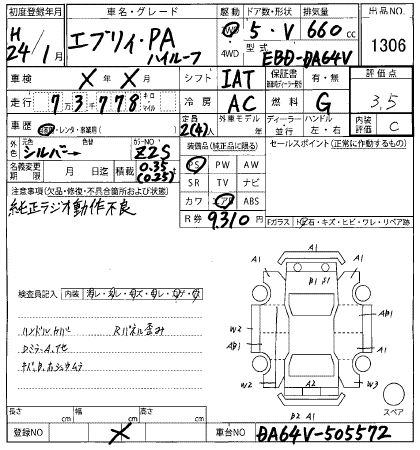 初度登録年月 車名・グレード 駆動 ドア数・形状 排気量 出品NO.
H 24/1月 エブリィ・PA ハイルーフ 2WD 4WD 5・V 660cc 1306
型式 EBD-DA64V
車検 X年X月 シフト IAT 保証書 有・無 評価点
走行 7万3千778 キロ マイル 冷房 AC 燃料 G 3,5
車歴 自家用・レンタ・事業用( ) 定員 2(4)人 外車モデル 年 ディーラー 並行 ハンドル 左・右 内装評価 C
外色 元色 シルバー 色替 カラーNO Z2S 装備品(純正品に限る) セールスポイント(正常に作動するもの)
名義変更期限 月 日迄 積載 0.35 (0.25)t PS PW AW
注意事項(欠品・修復・不具合箇所および状態) SR TV ナビ
純正ラジオ動作不良 カワ エアB ABS
R券 9,310円 Fガラス トビ石・キズ・ヒビ・ワレ・リペア跡
検査員記入 内装
A1
A1 A1
B1 S1
W2 AB1
AB1 A1
W2 A2 W3
B2 A1
ハンドルカバー Rパネル歪み
Dミラー.A.他
スペア
長さ cm 幅 cm 高さ cm
登録NO X 車台NO DA64V-505572